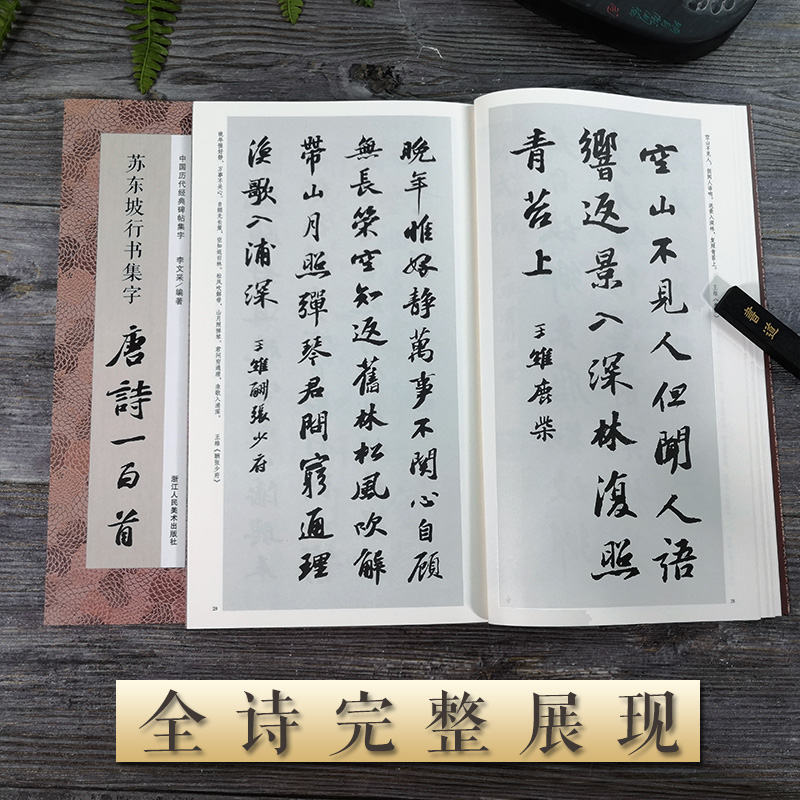 中国历代经典碑帖集字
李文采/编著
浙江人民美术出版社
苏东坡行书集字
唐詩一百首
空山不见人，但闻人语响。返景入深林，复照青苔上。 王维
空山不見人但聞人語
響返景入深林復照
青苔上 王維鹿柴
28
晚年惟好静萬事不関心自顧
無長策空知返舊林松風吹解
帶山月照彈琴君問窮通理
漁歌入浦深 王維酬張少府
晚年惟好静，万事不关心。自顾无长策，空知返旧林。松风吹解带，山月照弹琴。君问穷通理，渔歌入浦深。 王维《酬张少府》
29
全诗完整展现